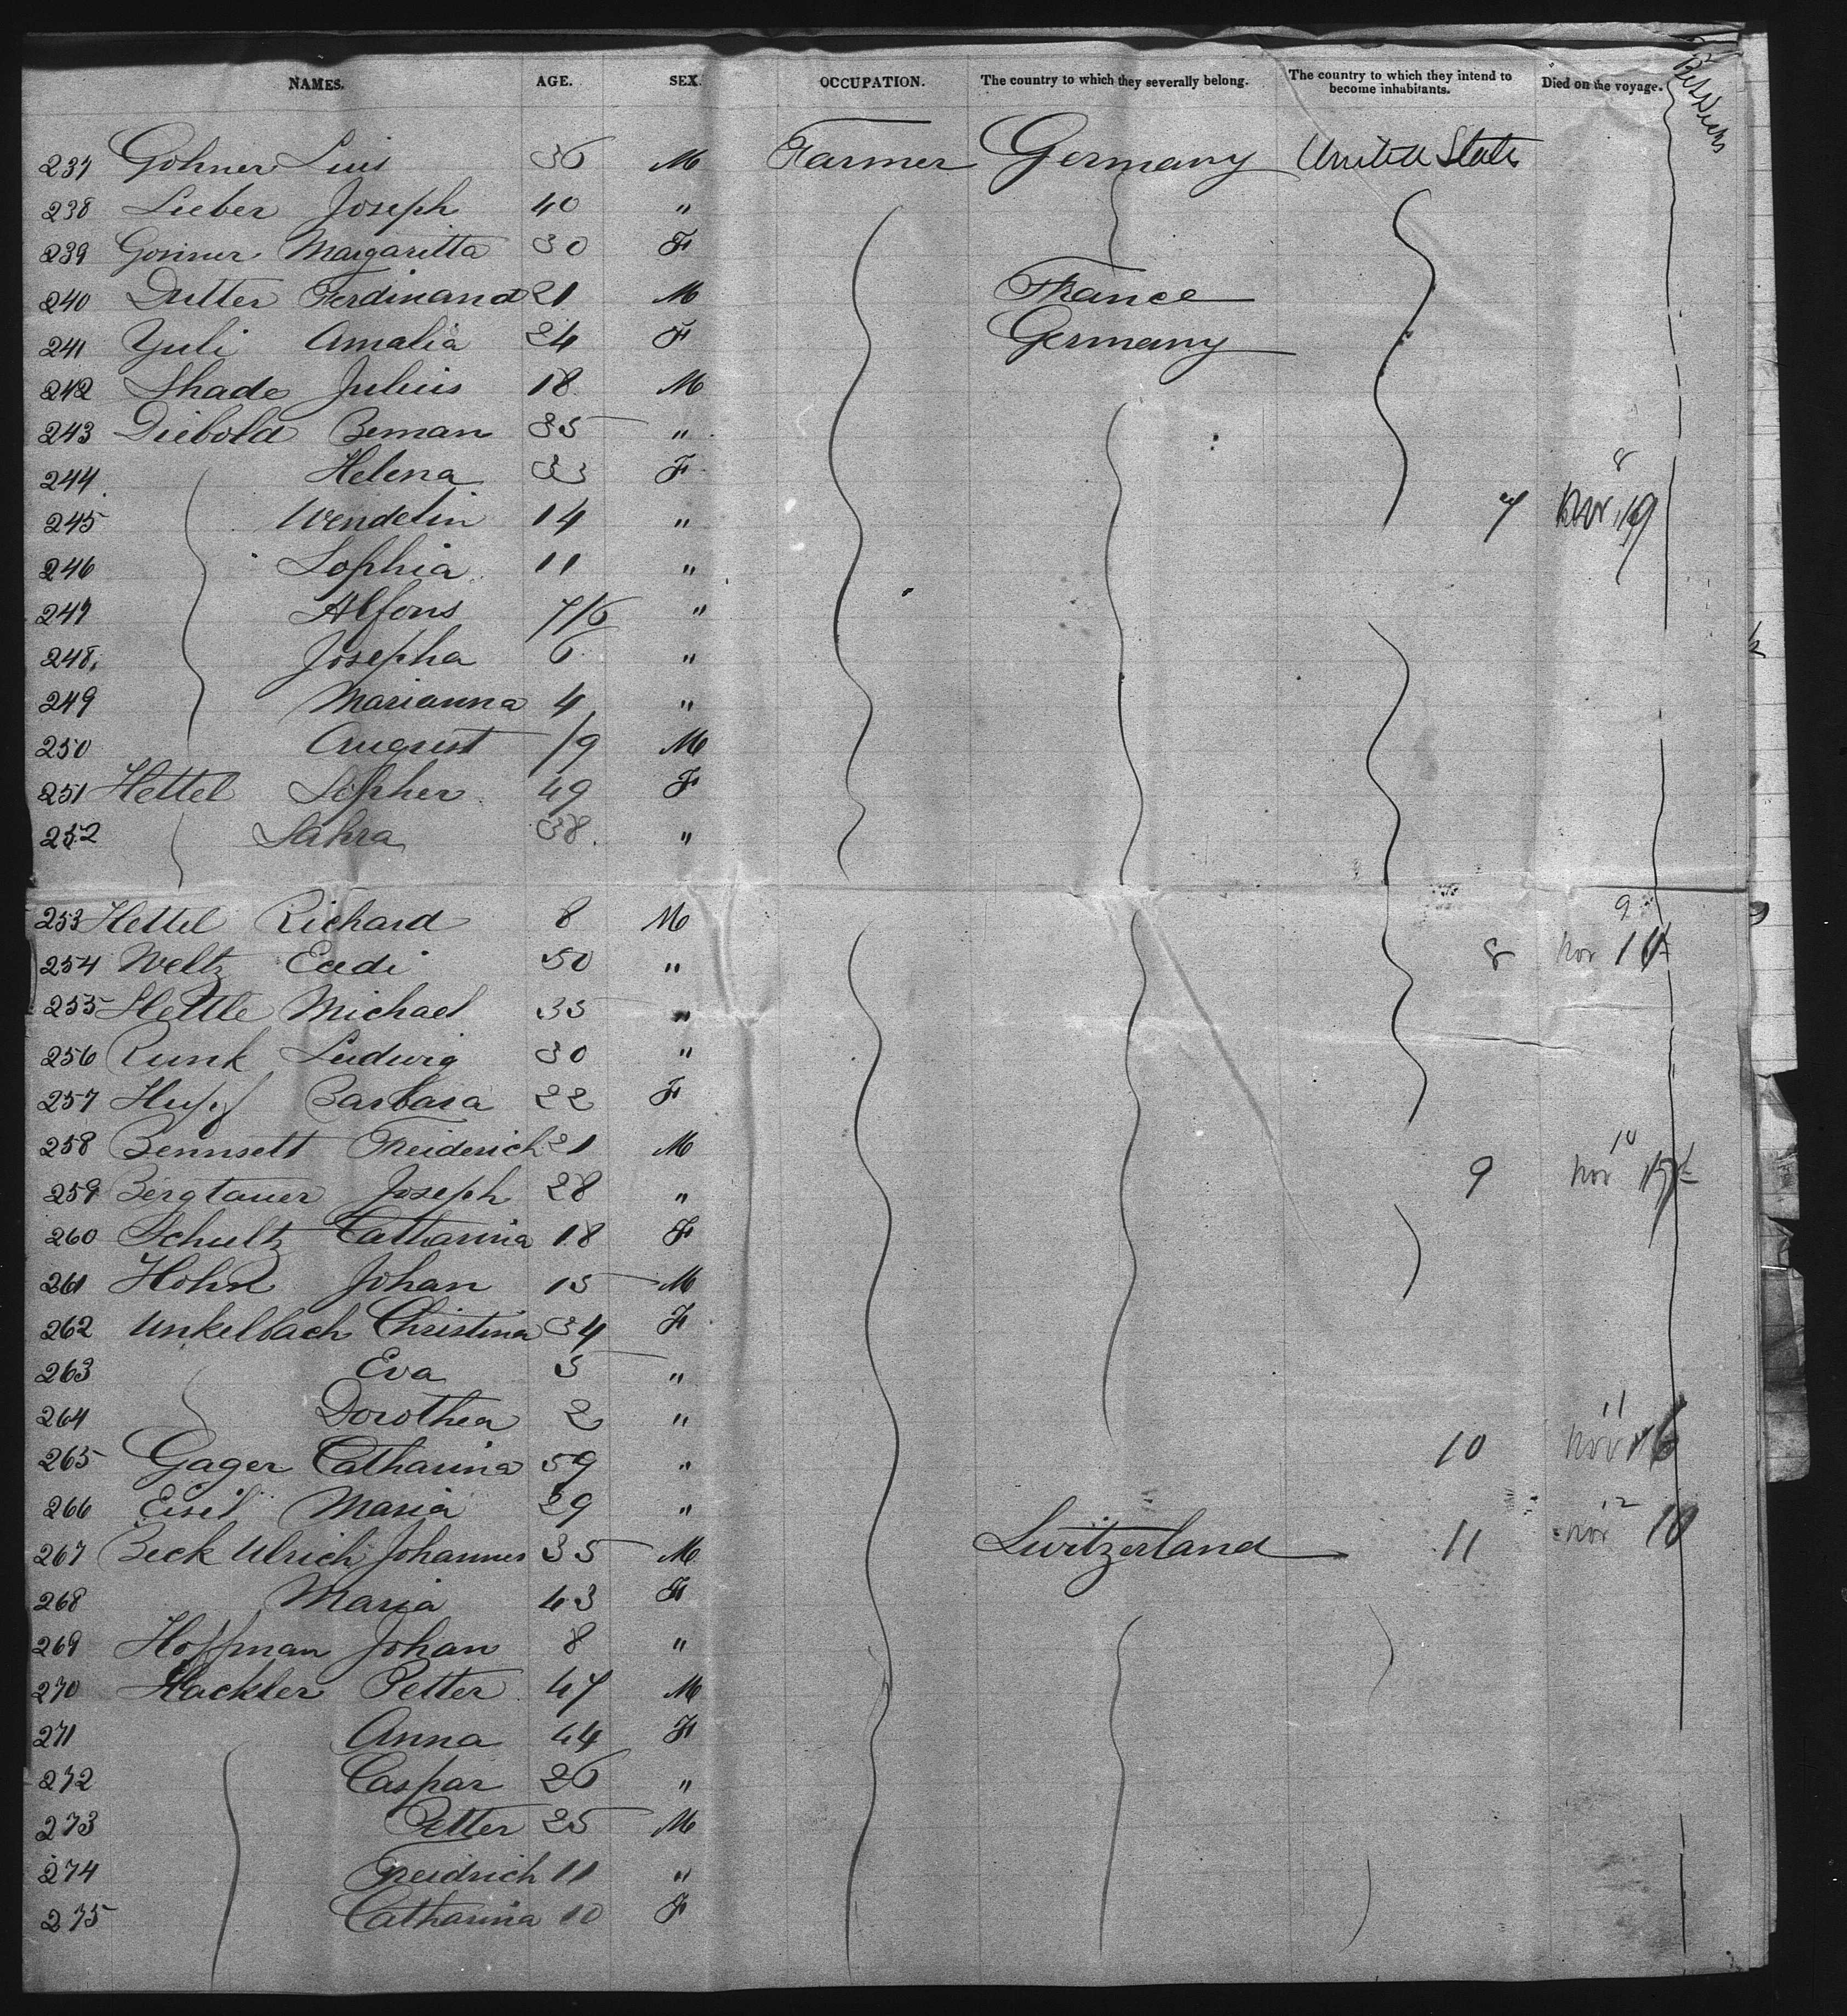 NAMES. AGE. SEX. OCCUPATION. The country to which they severally belong. The country to which they intend to become inhabitants. Died on the voyage.
237 Gohner Luis 36 M Farmer Germany United States
238 Lieber Joseph 40 "
239 Gonner Margaritta 30 F
240 Dutter Ferdinand 21 M France
241 Yuli Amalia 24 F Germany
242 Shade Julius 18 M
243 Diebold Beman 35 "
244 Helena 33 F 8
245 Wendelin 14 " 7 Nov 19
246 Sophia 11 "
247 Alfons 7/6 "
248 Josepha 6 "
249 Marianna 4 "
250 August /9 M
251 Hettel Sepher 49 F
252 Sahra 38 "
253 Hettel Richard 8 M 9
254 Weltz Eadi 50 " 8 Nov 14
255 Hettle Michael 35 "
256 Runk Ludwig 30 "
257 Hupf Barbara 22 F
258 Bennsett Freiderich 21 M 10
259 Bergtauer Joseph 28 " 9 Nov 15
260 Schultz Catharina 18 F
261 Hohn Johan 15 M
262 Unkelbach Christina 34 F
263 Eva 5 "
264 Dorothea 2 " 11
265 Gager Catharina 59 " 10 Nov 16
266 Eisil Maria 29 " 12
267 Beck Ulrich Johannes 35 M Switzerland 11 Nov 10
268 Maria 43 F
269 Hoffman Johan 8 "
270 Hackler Petter 47 M
271 Anna 44 F
272 Caspar 26 "
273 Petter 25 M
274 Freidrich 11 "
275 Catharina 10 F